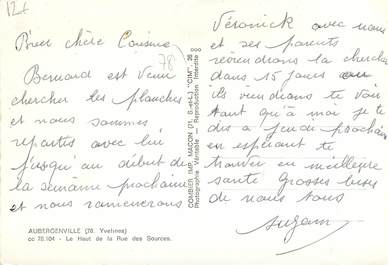 12f
Bien chère Cousine
78
Bernard est venu
chercher les planches
et nous sommes
repartis avec lui
jusqu'au début de
la semaine prochaine
et nous ramènerons
AUBERGENVILLE (78. Yvelines)
cc 78.104 - Le Haut de la Rue des Sources.
COMBIER IMP. MACON (71. S.-et-L.) "CIM"
Photographie Véritable - Reproduction Interdite
Véronick avec nous
et ses parents
reviendrons la chercher
dans 15 jours ou
ils viendrons te voir
tant qu'à moi je te
dis a jeudi prochain
en espérant te
trouver en meilleure
santé Grosses bises
de nous tous
Suzanne